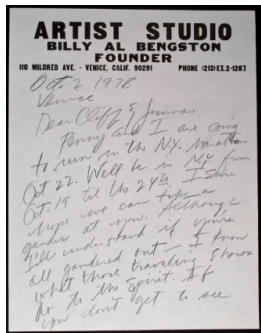 ARTIST STUDIO
BILLY AL BENGSTON
FOUNDER
110 MILDRED AVE. · VENICE, CALIF. 90291 PHONE (213) EX.2-1287
Oct. 2 1978
Venice
Dear Cliff &
Penny and I are going
to run in the N.Y. Marathon
Oct 22. We'll be in N.Y. from
Oct. 19 til the 24th. I sure
hope we can take a
gander at you. Although
I'll understand if you're
all gandered out — I know
what those traveling shows
do to the spirit. If
you don't get to see